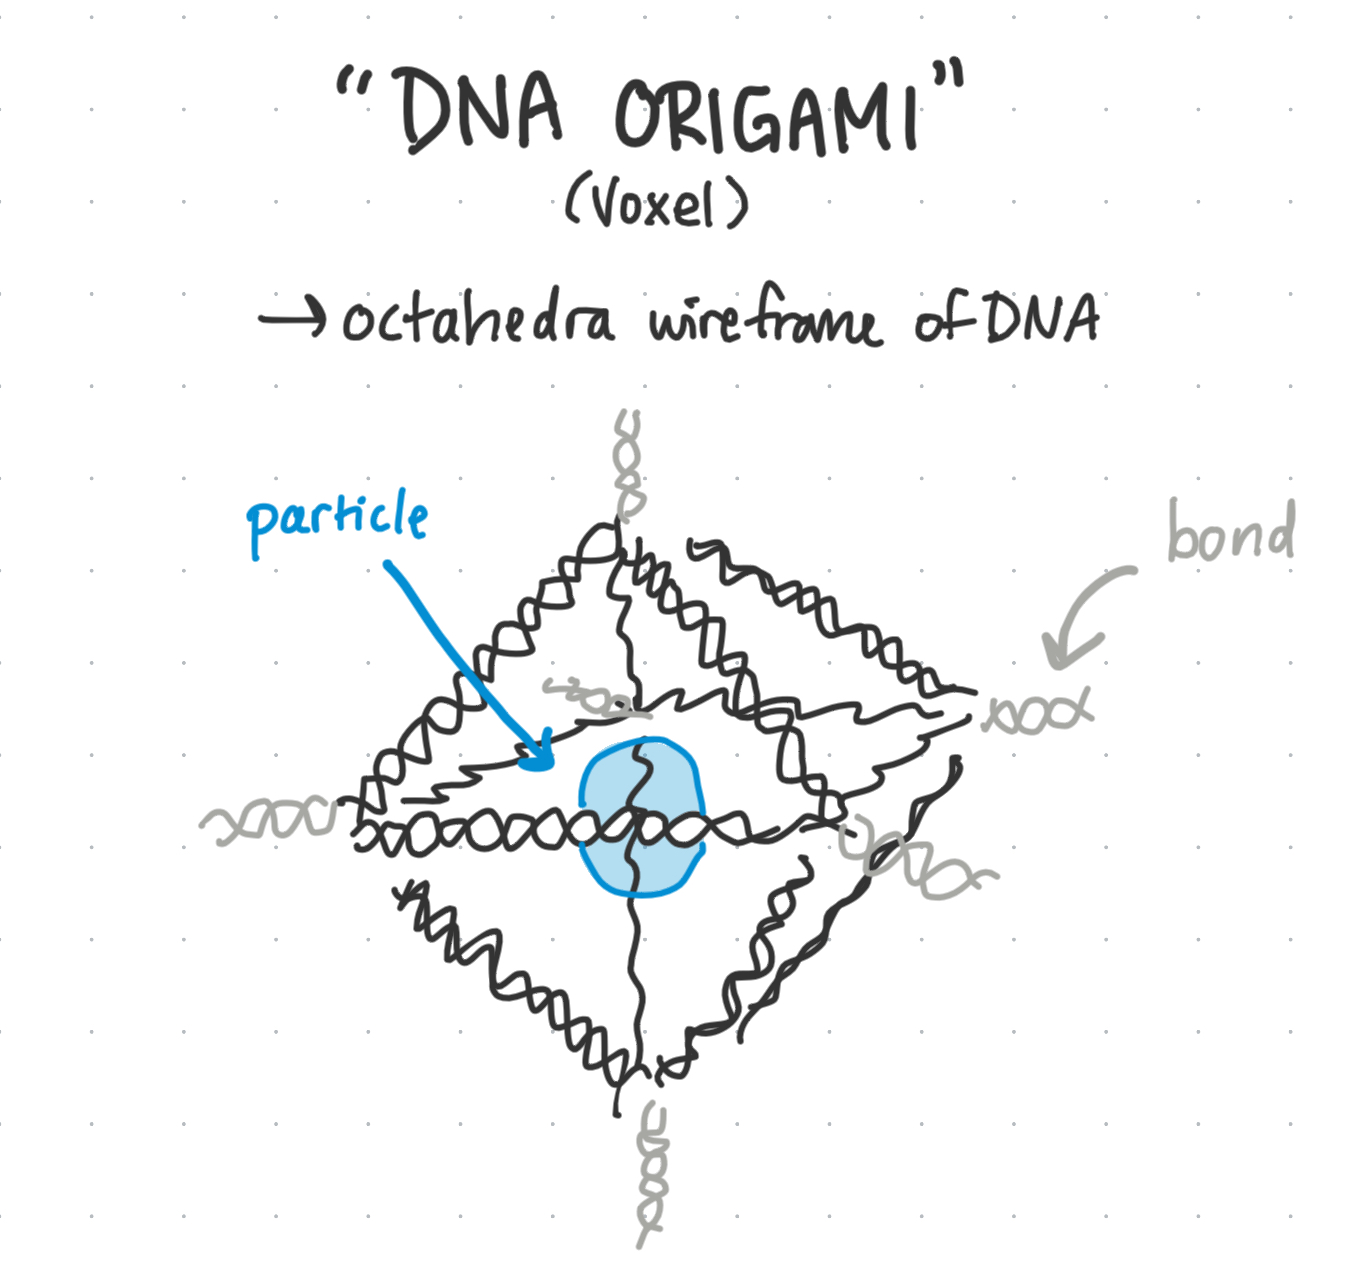 "DNA ORIGAMI"
(Voxel)
→ octahedra wireframe of DNA
particle
bond